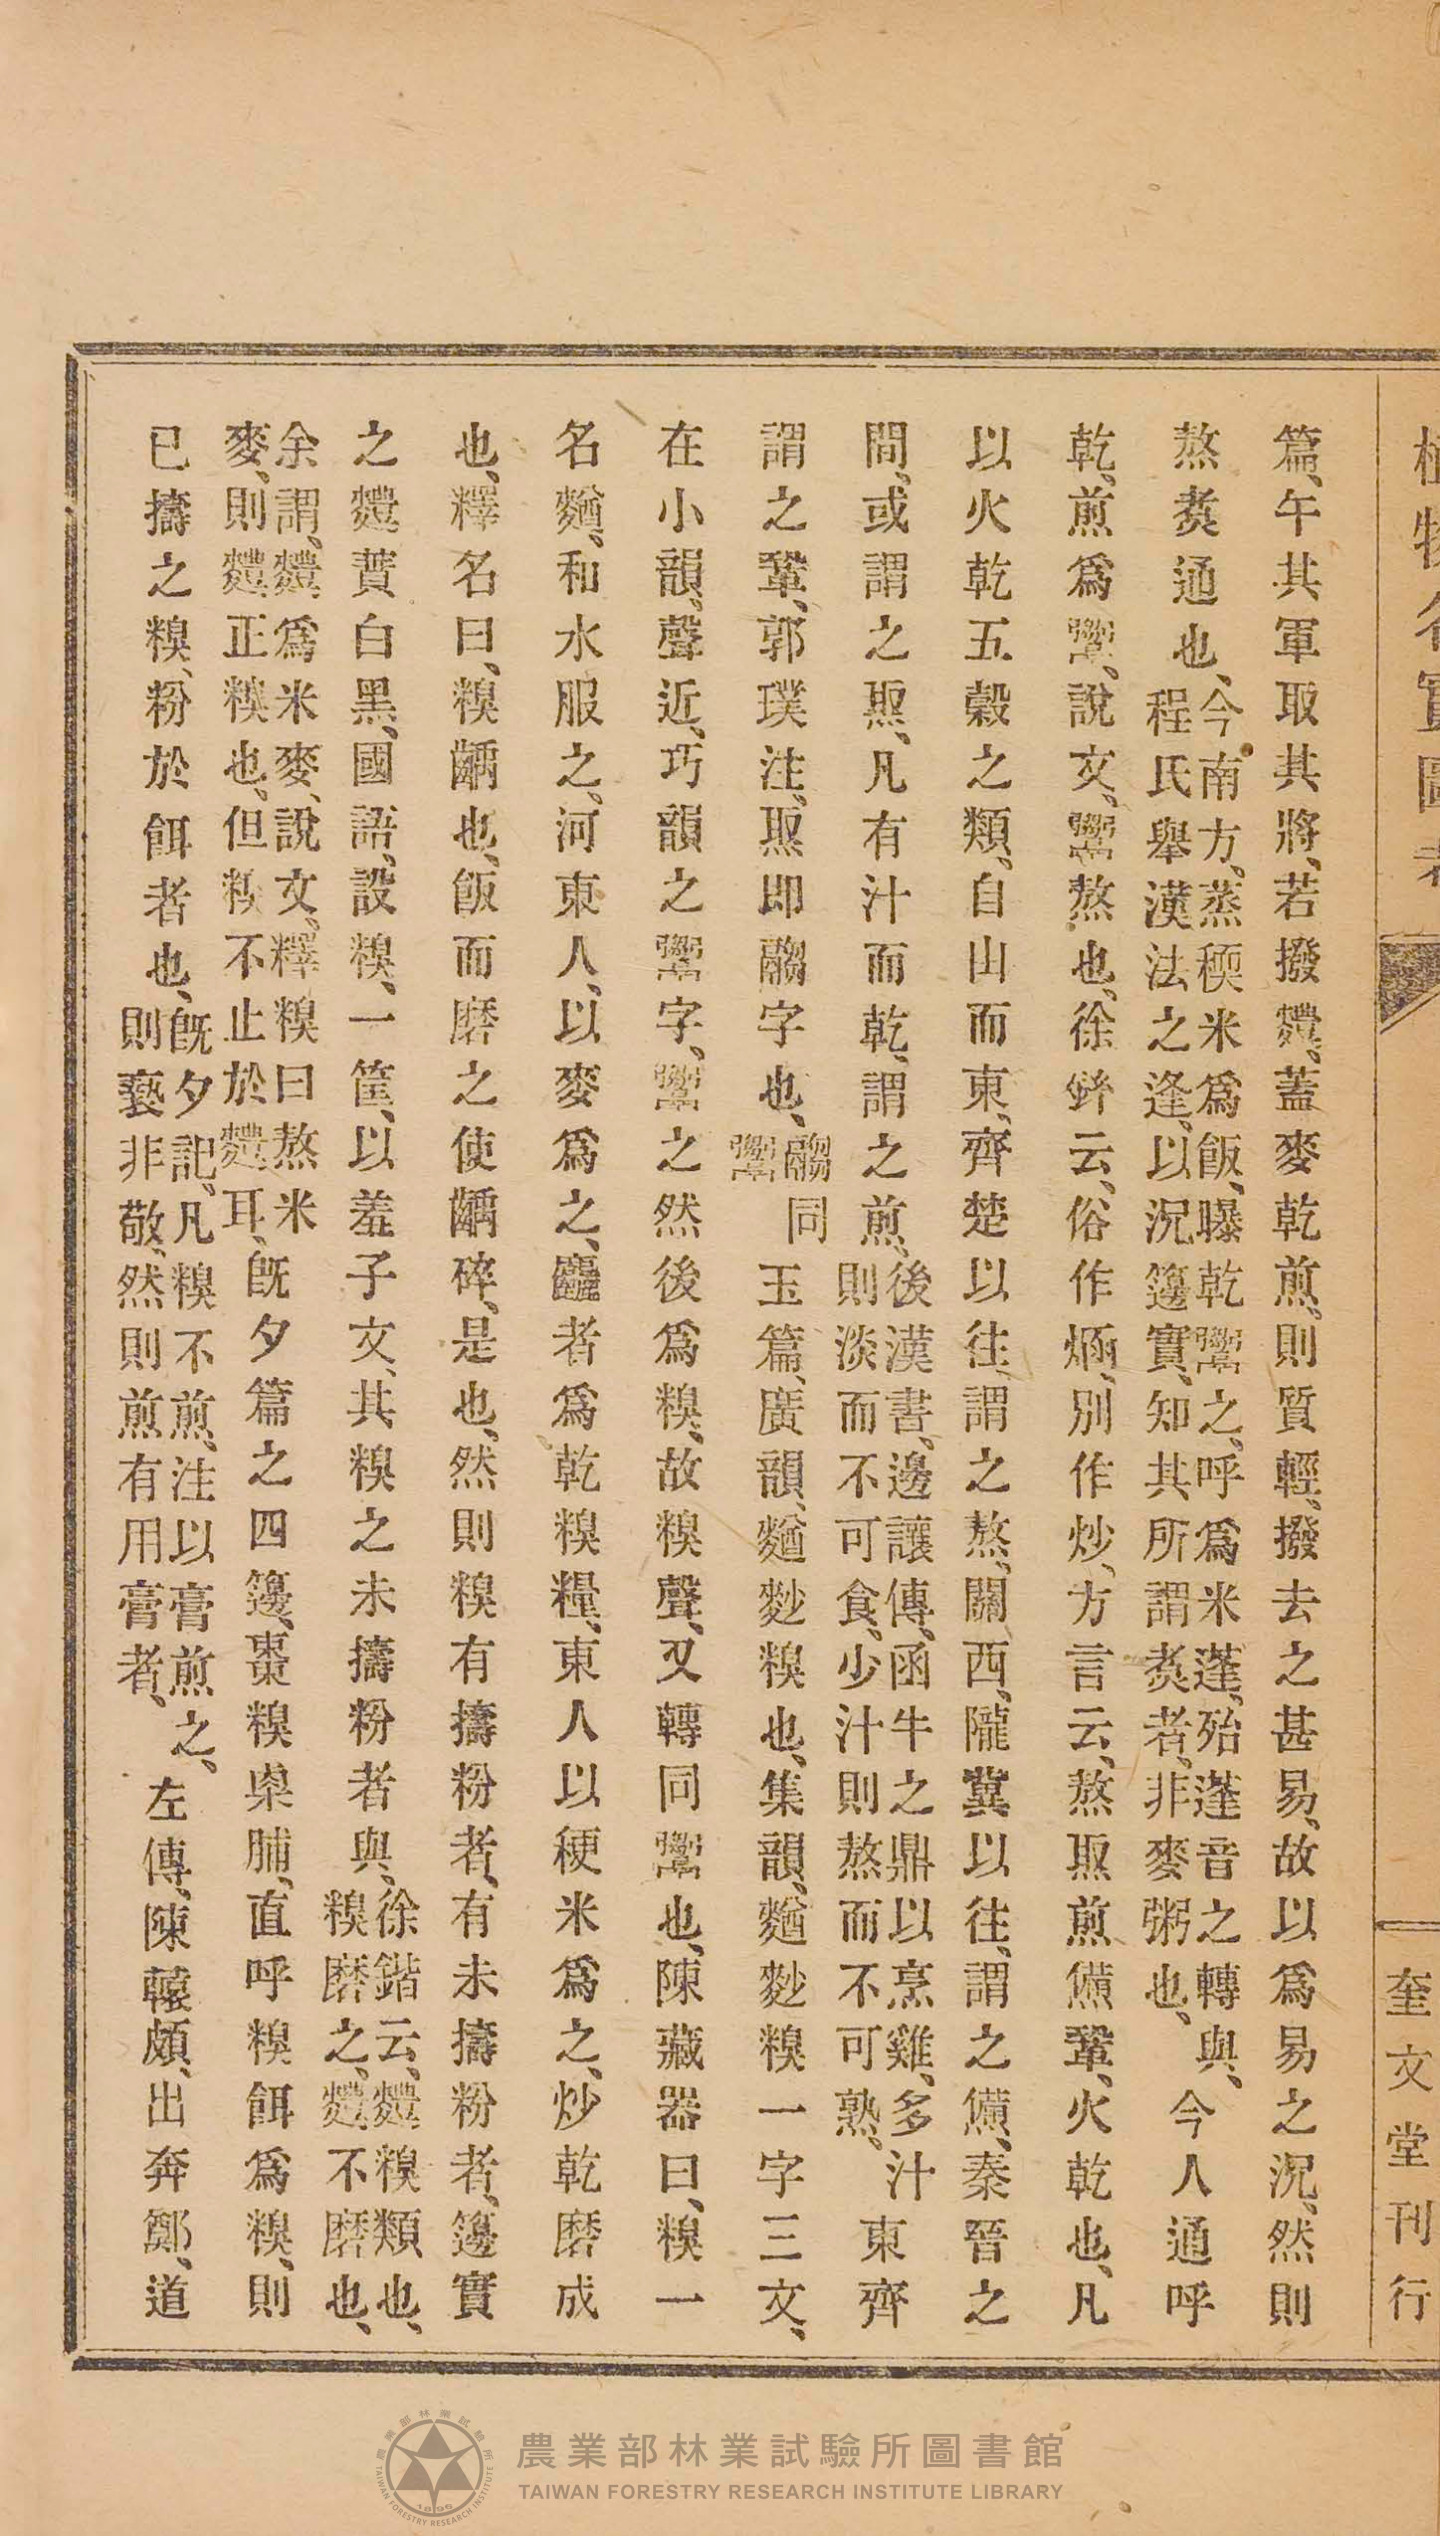 植物名實圖考
奎文堂刊行
篇、午其軍取其將、若撥麷、蓋麥乾煎、則質輕、撥去之甚易、故以爲易之況、然則
熬煑通也、今南方、蒸稬米爲飯、曝乾鬻之、呼爲米蓬、殆蓬音之轉與、程氏舉漢法之逢、以況籩實、知其所謂煑者、非麥粥也、今人通呼
乾煎爲、說文、熬也、徐鉉云、俗作煼、別作炒、方言云、熬焣煎㷶鞏、火乾也、凡
以火乾五穀之類、自山而東、齊楚以往、謂之熬、關西、隴冀以往、謂之㷶、秦晉之
間、或謂之焣、凡有汁而乾、謂之煎、後漢書、邊讓傳、函牛之鼎以烹雞、多汁則淡而不可食、少汁則熬而不可熟、東齊
謂之鞏、郭璞注、焣即䰞字也、䰞同玉篇、廣韻、麨糗也、集韻、麨糗一字三文、
在小韻、聲近、巧韻之字、之然後爲糗、故糗聲、又轉同也、陳藏器曰、糗一
名麨、和水服之、河東人、以麥爲之、麤者爲乾糗糧、東人以稉米爲之、炒乾磨成
也、釋名曰、糗齲也、飯而磨之使齲碎、是也、然則糗有擣粉者、有未擣粉者、籩實
之麷蕡白黑、國語、設糗、一筐、以羞子文、其糗之未擣粉者與、徐鍇云、麷糗類也、糗磨之、麷不磨也、
余謂、麷爲米麥、說文、釋糗曰熬米麥、則麷正糗也、但糗不止於麷耳、旣夕篇之四籩、棗糗㮚脯、直呼糗餌爲糗、則
已擣之糗、粉於餌者也、旣夕記、凡糗不煎、注以膏煎之、則褻非敬、然則煎有用膏者、左傳、陳轅頗、出奔鄭、道
農業部林業試驗所圖書館
TAIWAN FORESTRY RESEARCH INSTITUTE LIBRARY